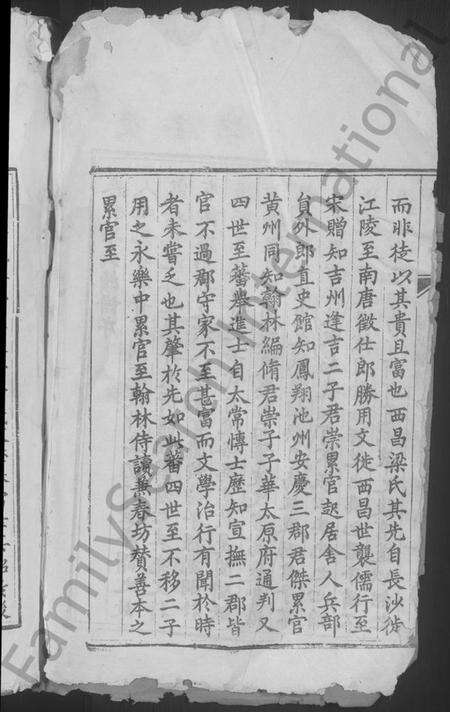 而非徒以其貴且富也西昌梁氏其先自長沙徙
江陵至南唐徵仕郎勝用文徙西昌世襲儒行至
宋贈知吉州逢吉二子君崇累官起居舍人兵部
員外郎直史館知鳳翔池州安慶三郡君傑累官
黄州同知翰林編脩君崇子子華太原府通判又
四世至蕃舉進士自太常愽士歷知宣撫二郡皆
官不過郡守家不至甚富而文學治行有聞於時
者未嘗乏也其肇於先如此蕃四世至不移二子
用之永樂中累官至翰林侍讀兼春坊賛善本之
累官至
FamilySearch International